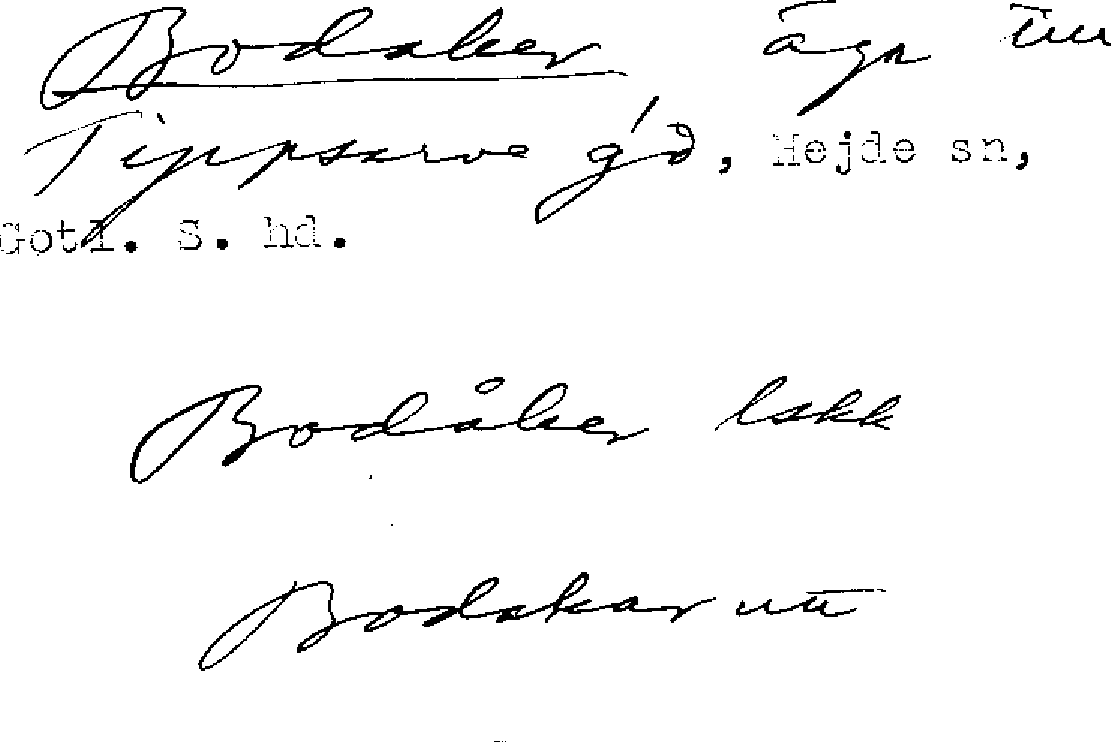 Bodaker ägr till
Tippsarve gd, Hejde sn,
Gotl. S. hd.
Bodåker lskk
Bodakar